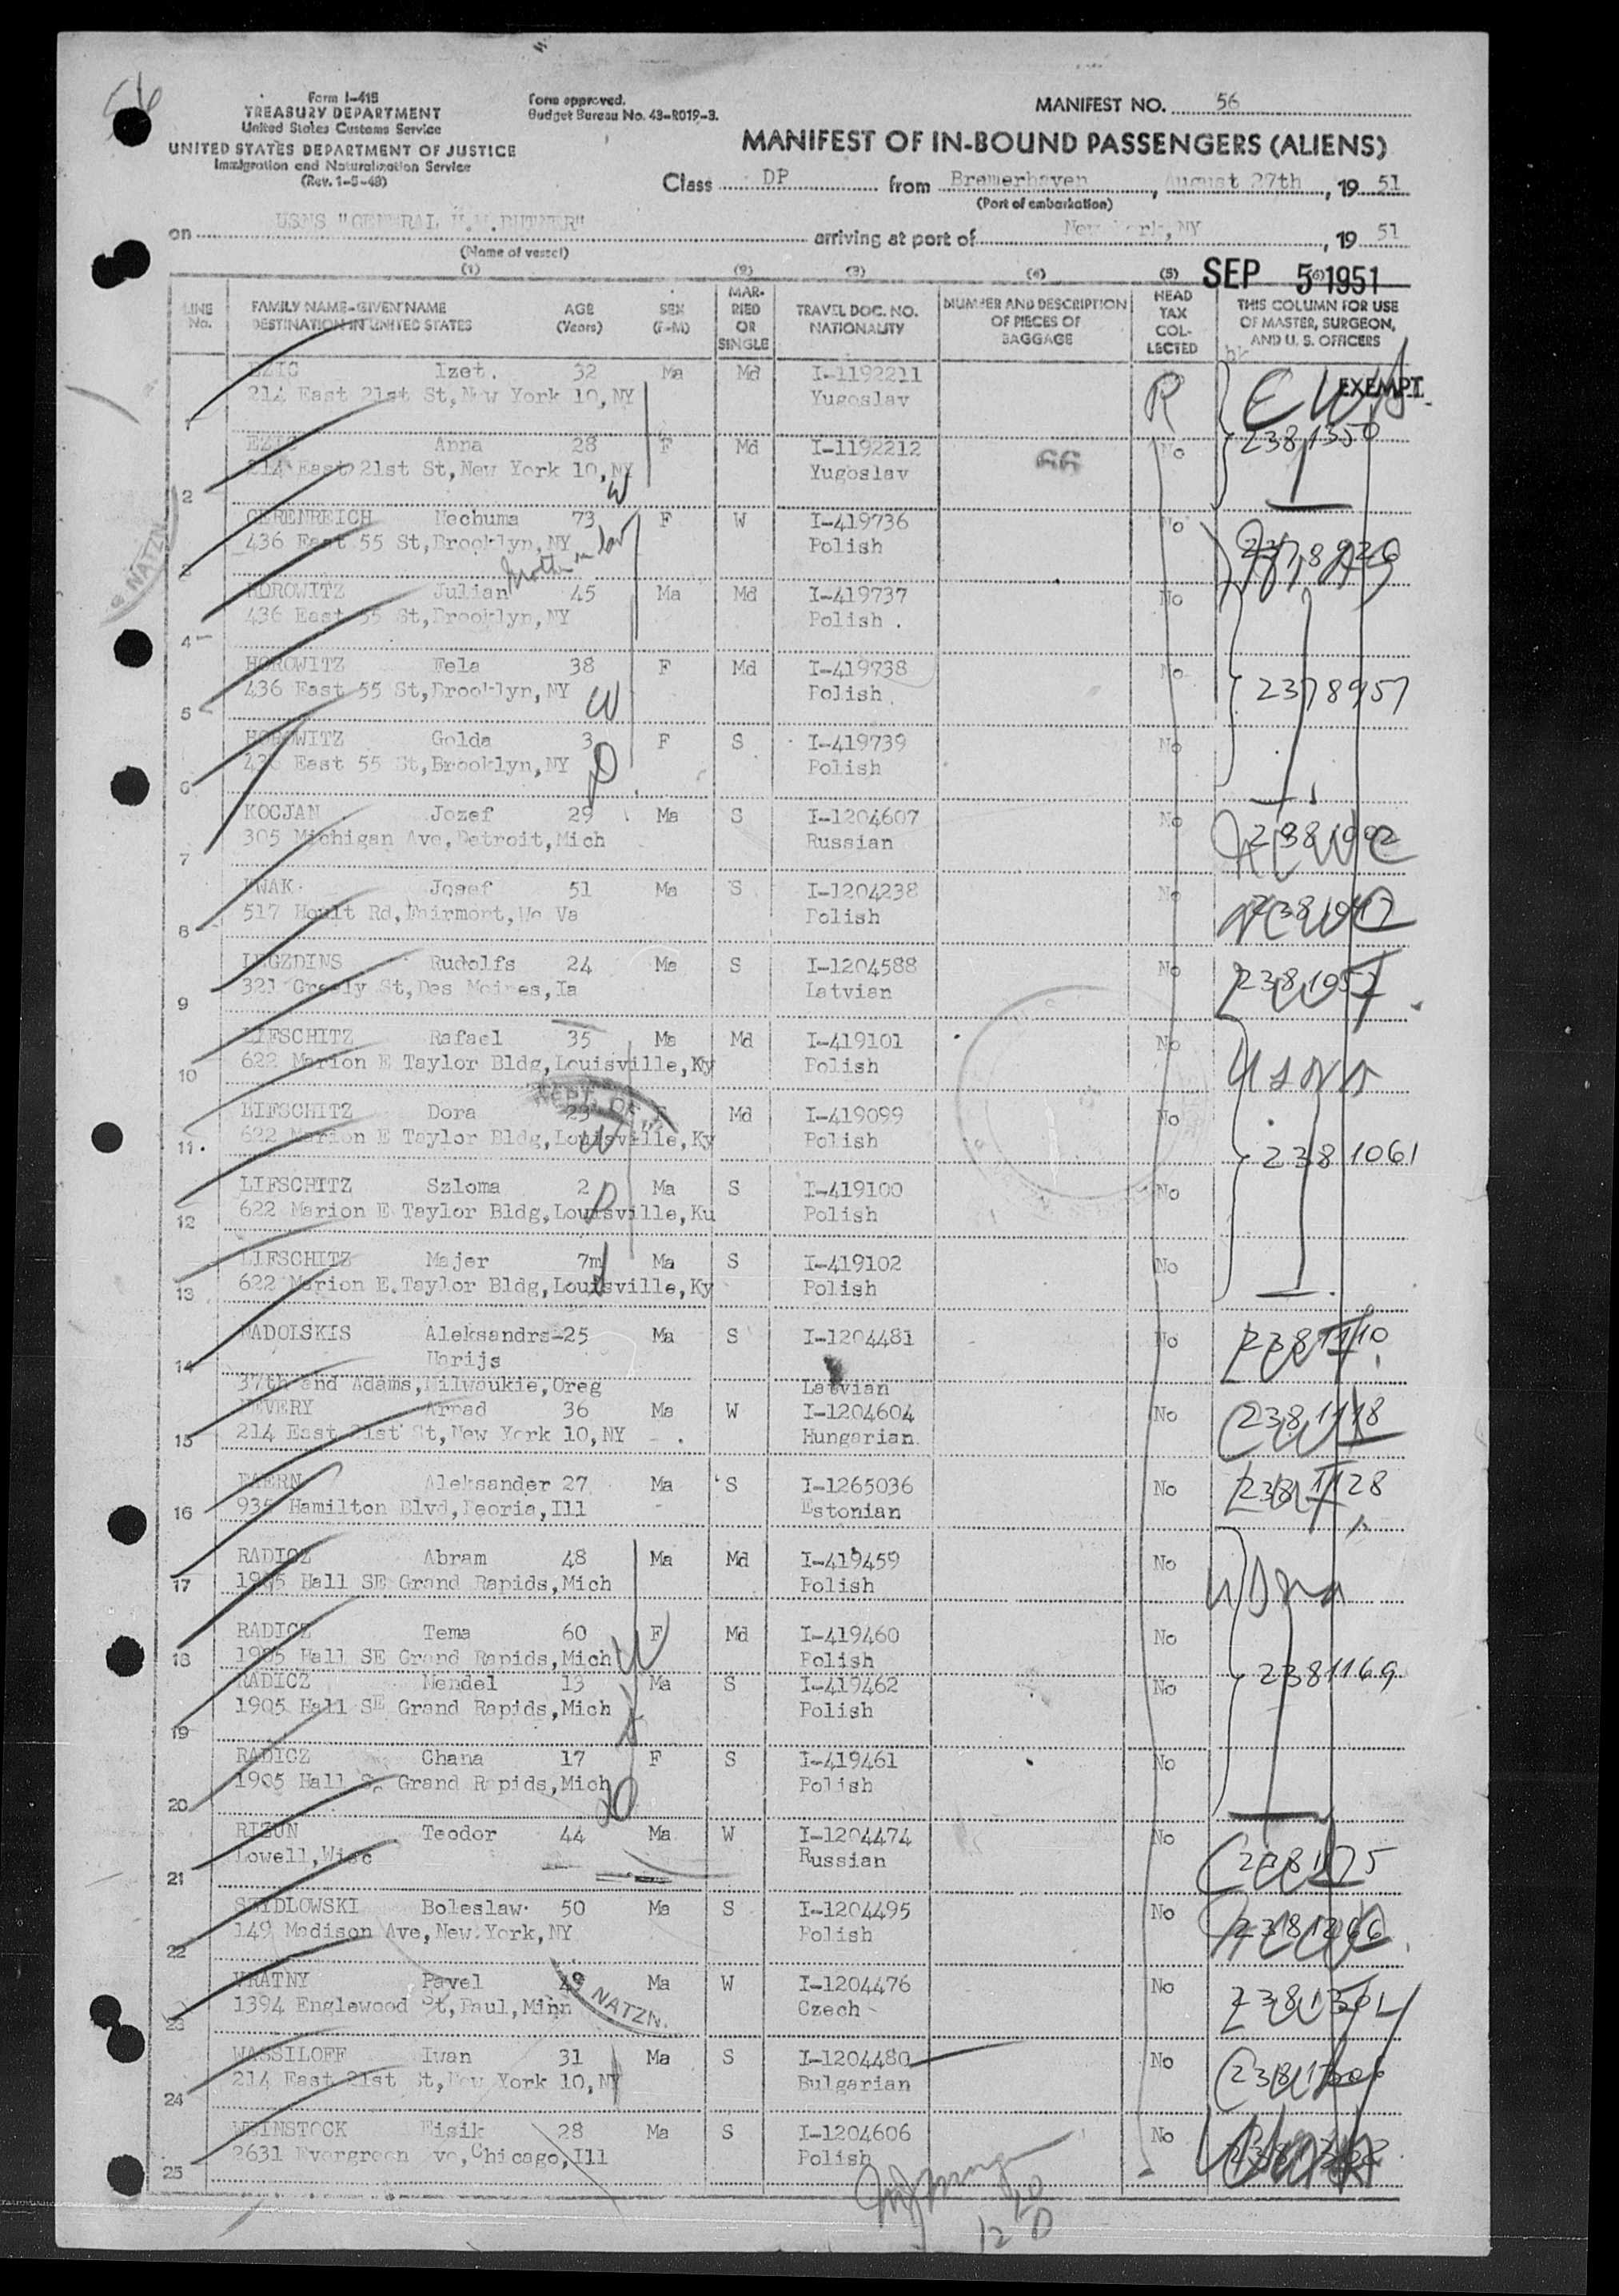 56
Form I-415
TREASURY DEPARTMENT
United States Customs Service
UNITED STATES DEPARTMENT OF JUSTICE
Immigration and Naturalization Service
(Rev. 1-5-48)
Form approved.
Budget Bureau No. 43-R019-3.
MANIFEST NO. 56
MANIFEST OF IN-BOUND PASSENGERS (ALIENS)
Class DP from Bremerhaven, August 27th, 19 51
(Port of embarkation)
on USNS "GENERAL BUTNER" arriving at port of New York, NY, 19 51
(Name of vessel)
(1) (2) (3) (4) (5) (6)
SEP 5 1951
LINE No.
FAMILY NAME-GIVEN NAME
DESTINATION IN UNITED STATES
AGE (Years)
SEX (F-M)
MARRIED OR SINGLE
TRAVEL DOC. NO. NATIONALITY
NUMBER AND DESCRIPTION OF PIECES OF BAGGAGE
HEAD TAX COLLECTED
THIS COLUMN FOR USE OF MASTER, SURGEON, AND U. S. OFFICERS
EZIC Izet. 32 Ma Md I-1192211 R EXEMPT
1 214 East 21st St, New York 10, NY Yugoslav
EZIC Anna 28 F Md I-1192212 No 2381350
2 214 East 21st St, New York 10, NY Yugoslav
W
GERENREICH Nechuma 73 F W I-419736 No
3 436 East 55 St, Brooklyn, NY Polish
Mother in law
HOROWITZ Julian 45 Ma Md I-419737 No
4 436 East 55 St, Brooklyn, NY Polish .
HOROWITZ Fela 38 F Md I-419738 No 2378957
5 436 East 55 St, Brooklyn, NY Polish
W
HOROWITZ Golda 3 F S I-419739 No
6 436 East 55 St, Brooklyn, NY Polish
D
KOCJAN Jozef 29 Ma S I-1204607 No
7 305 Michigan Ave, Detroit, Mich Russian
KWAK Josef 51 Ma S I-1204238 No
8 517 Hoult Rd, Fairmont, We Va Polish
LEGZDINS Rudolfs 24 Ma S I-1204588 No 2381057
9 321 Greely St, Des Moines, Ia Latvian
LIFSCHITZ Rafael 35 Ma Md I-419101 No Usna
10 622 Marion E Taylor Bldg, Louisville, Ky Polish
LIFSCHITZ Dora 23 F Md I-419099 No
11 622 Marion E Taylor Bldg, Louisville, Ky Polish 2381061
W
LIFSCHITZ Szloma 2 Ma S I-419100 No
12 622 Marion E Taylor Bldg, Louisville, Ku Polish
LIFSCHITZ Majer 7m Ma S I-419102 No
13 622 Marion E. Taylor Bldg, Louisville, Ky Polish
NADOLSKIS Aleksandrs-25 Ma S I-1204481 No 2381110
14 Harijs
37th and Adams, Milwaukie, Oreg Latvian
NEVERY Arpad 36 Ma W I-1204604 No 2381118
15 214 East 21st St, New York 10, NY Hungarian
PAERN Aleksander 27 Ma S I-1265036 No 2381128
16 935 Hamilton Blvd, Peoria, Ill Estonian
RADICZ Abram 48 Ma Md I-419459 No Usna
17 1905 Hall SE Grand Rapids, Mich Polish
RADICZ Tema 60 F Md I-419460 No
18 1905 Hall SE Grand Rapids, Mich Polish
W
RADICZ Mendel 13 Ma S I-419462 No 2381169
19 1905 Hall SE Grand Rapids, Mich Polish
RADICZ Chana 17 F S I-419461 No
20 1905 Hall Se Grand Rapids, Mich Polish
D
RIZUN Teodor 44 Ma W I-1204474 No
21 Lowell, Wisc Russian
SZYDLOWSKI Boleslaw 50 Ma S I-1204495 No 2381266
22 149 Madison Ave, New York, NY Polish
VRATNY Pavel 49 Ma W I-1204476 No
23 1394 Englewood St, Paul, Minn Czech
& NATZN.
WASSILOFF Iwan 31 Ma S I-1204480 No
24 214 East 21st St, New York 10, NY Bulgarian
WEINSTOCK Eisik 28 Ma S I-1204606 No
25 2631 Evergreen Ave, Chicago, Ill Polish
12 D